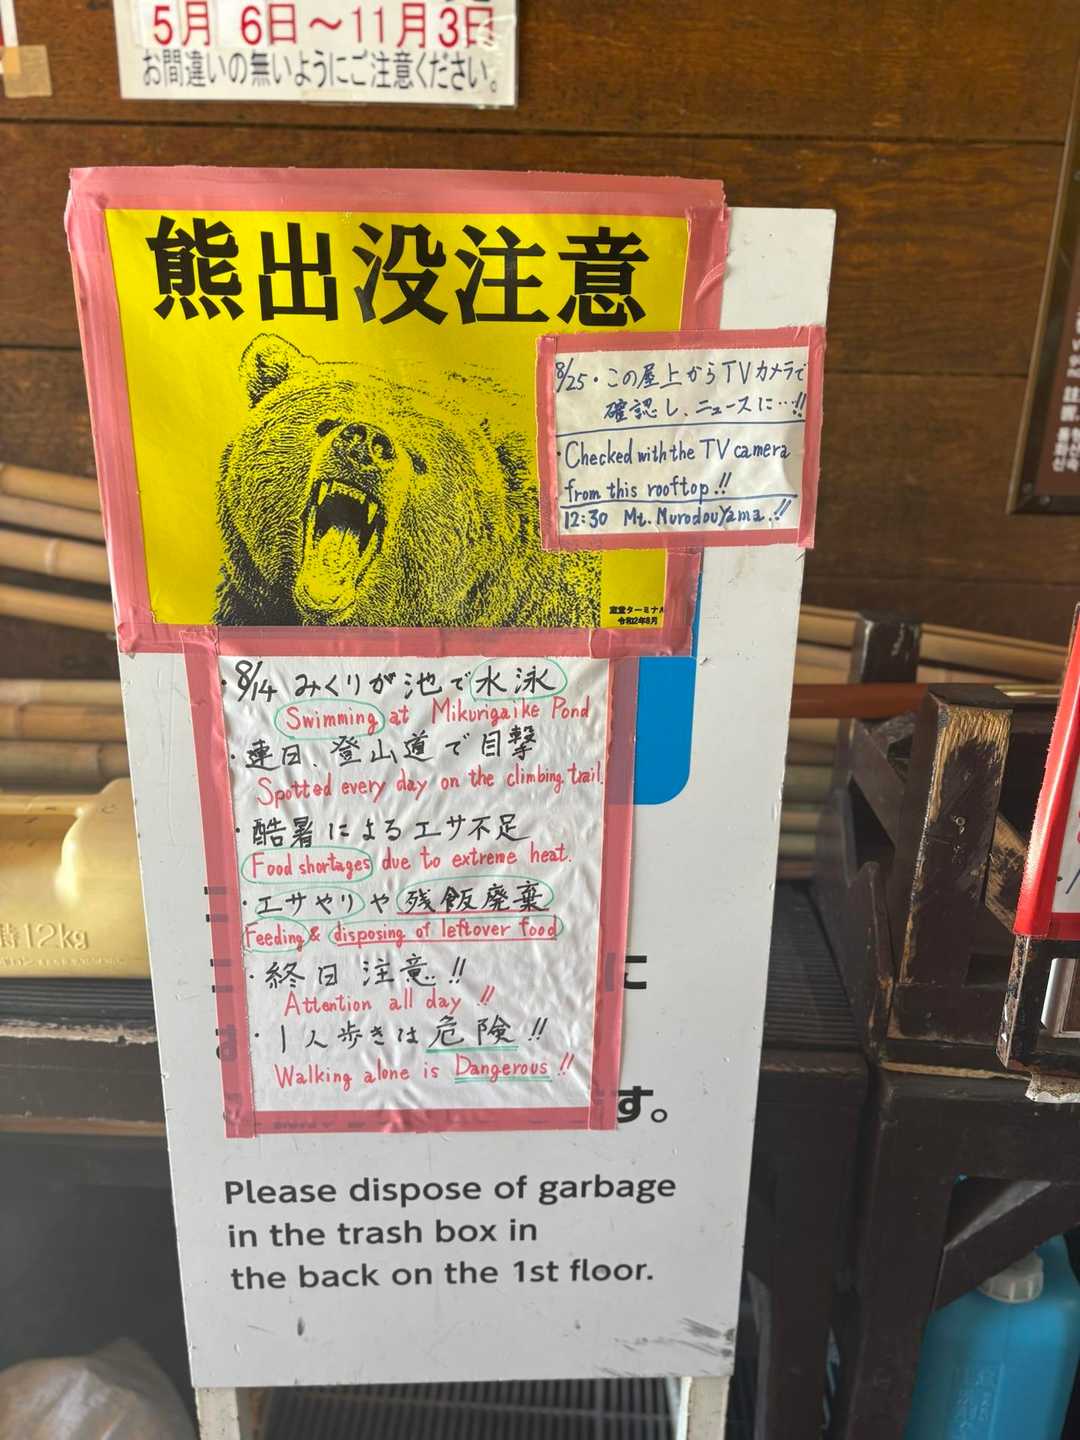 5月 6日～11月3日
お間違いの無いようにご注意ください。
熊出没注意
室堂ターミナル
令和2年8月
8/25・この屋上からTVカメラで
確認し、ニュースに…!!
・Checked with the TV camera
from this rooftop!!
12:30 Mt. MurodouYama!!
・8/14 みくりが池で水泳
Swimming at Mikurigaike Pond
・連日、登山道で目撃
Spotted every day on the climbing trail.
・酷暑によるエサ不足
Food shortages due to extreme heat.
・エサやりや残飯廃棄
Feeding & disposing of leftover food
・終日注意!!
Attention all day!!
・1人歩きは危険!!
Walking alone is Dangerous!!
に
す。
Please dispose of garbage
in the trash box in
the back on the 1st floor.
12kg